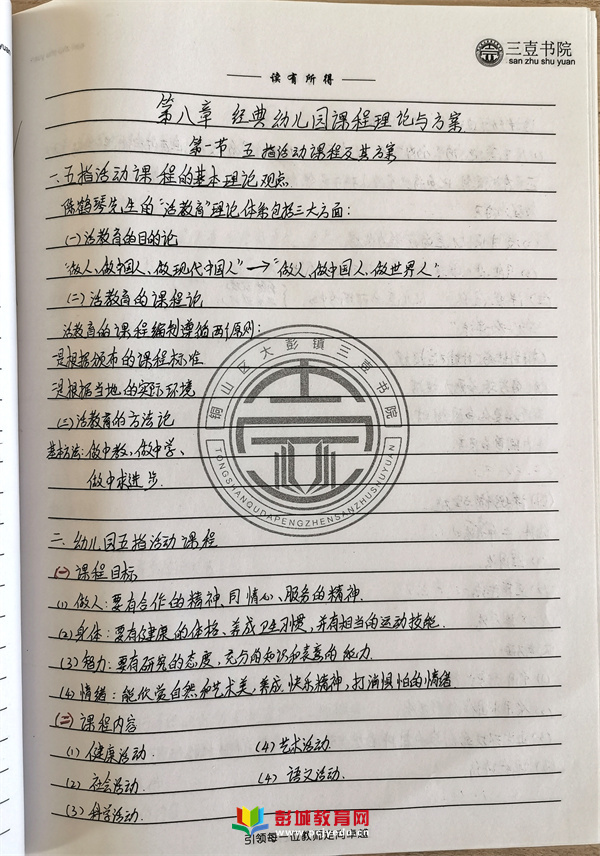 三壹书院
san zhu shu yuan
读有所得
第八章 经典幼儿园课程理论与方案
第一节 五指活动课程及其方案
一、五指活动课程的基本理论观点
陈鹤琴先生的“活教育”理论体系包括三大方面：
(一)活教育的目的论
“做人、做中国人、做现代中国人”→“做人、做中国人、做世界人”.
(二)活教育的课程论
活教育的课程编制遵循两个原则：
是根据颁布的课程标准
是根据当地的实际环境
(三)活教育的方法论
基本方法：做中教、做中学、
做中求进步.
铜山区大彭镇三壹书院
TONGSHANQUDAPENGZHENSANZHUSHUYUAN
二、幼儿园五指活动课程
(一)课程目标
(1)做人：要有合作的精神、同情心、服务的精神.
(2)身体：要有健康的体格、养成卫生习惯，并有相当的运动技能.
(3)智力：要有研究的态度，充分的知识和表意的能力.
(4)情绪：能欣赏自然和艺术美，养成快乐精神，打消惧怕的情绪.
(二)课程内容
(1)健康活动. (4)艺术活动.
(2)社会活动. (4)语文活动.
(3)科学活动.
彭城教育网
引领每一位教师走向卓越